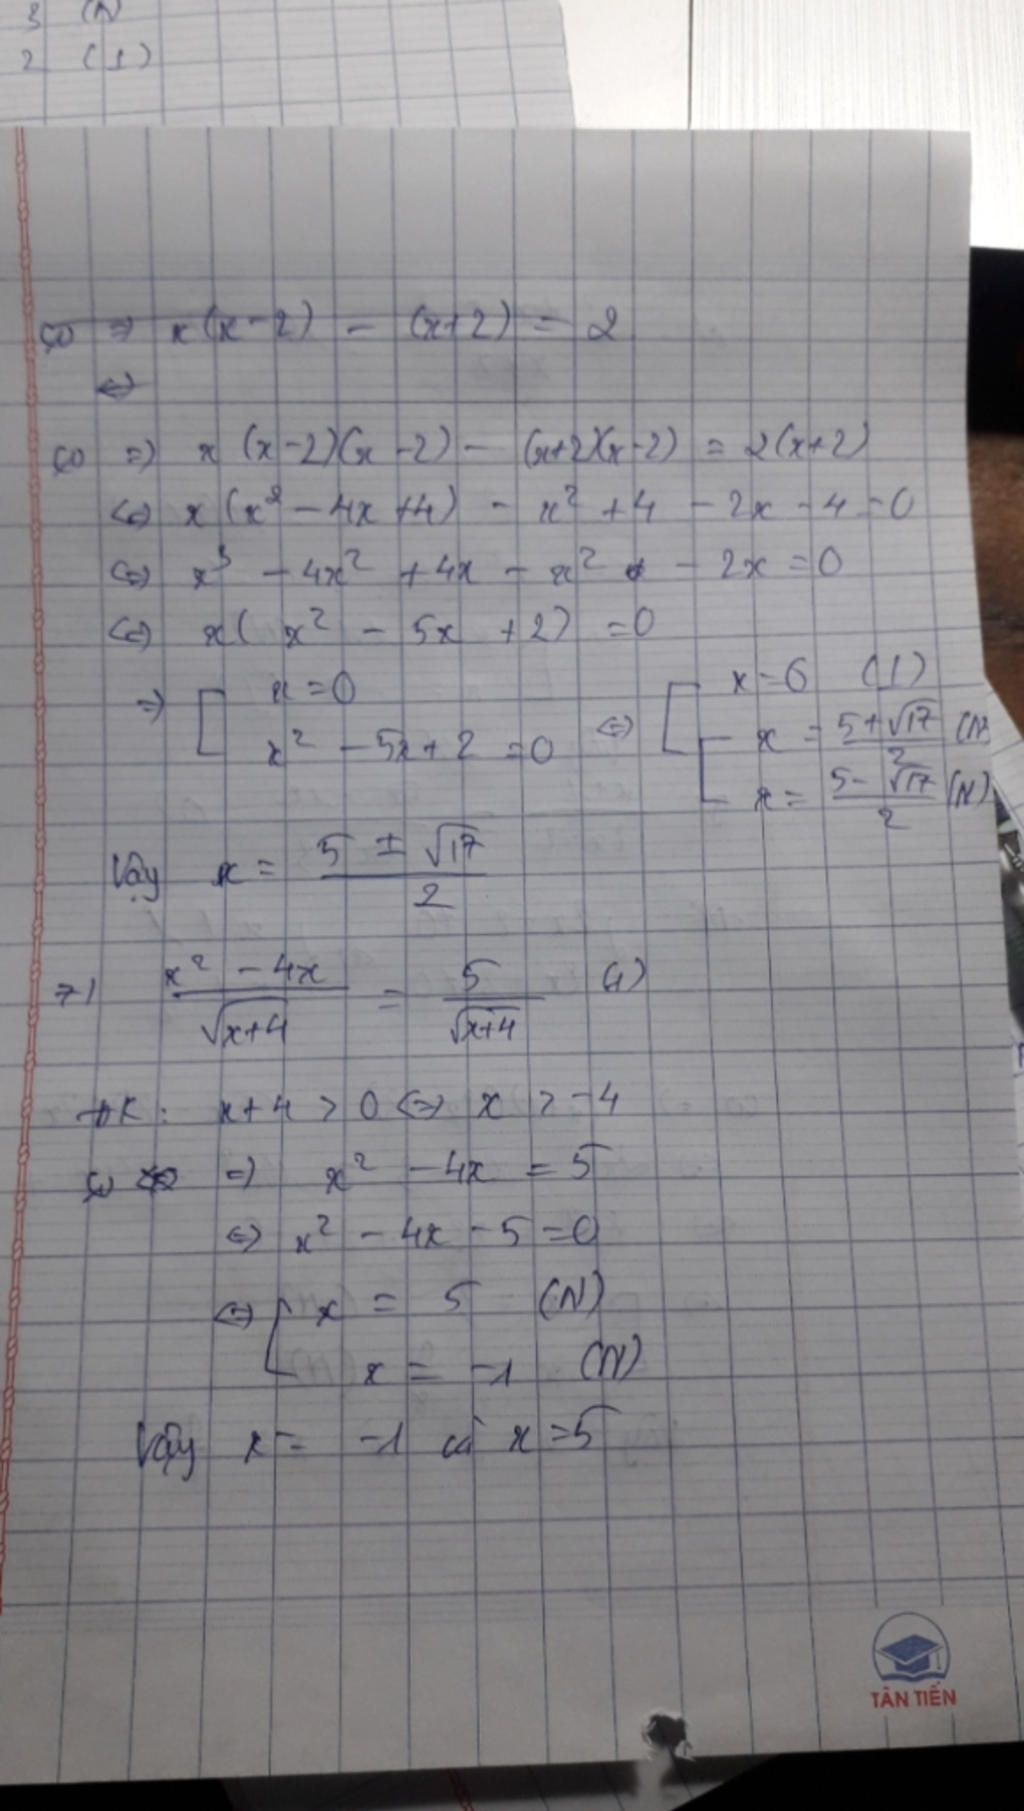 3 (N
2 (1)
(1) => x(x-2) - (x+2) = 2
<=>
(1) => x (x-2)(x-2) - (x+2)(x-2) = 2(x+2)
<=> x (x² - 4x + 4) - x² + 4 - 2x - 4 = 0
<=> x³ - 4x² + 4x - x² - 2x = 0
<=> x( x² - 5x + 2) = 0
=> [ x = 0 <=> [ x = 0 (L)
x² - 5x + 2 = 0 x = (5+√17)/2 (N)
x = (5-√17)/2 (N)
Vậy x = (5 ± √17)/2
7) (x² - 4x)/√(x+4) = 5/√(x+4) (1)
ĐK: x+4 > 0 <=> x > -4
(1) => x² - 4x = 5
<=> x² - 4x - 5 = 0
<=> [ x = 5 (N)
x = -1 (N)
Vậy x = -1 và x = 5
TÂN TIẾN